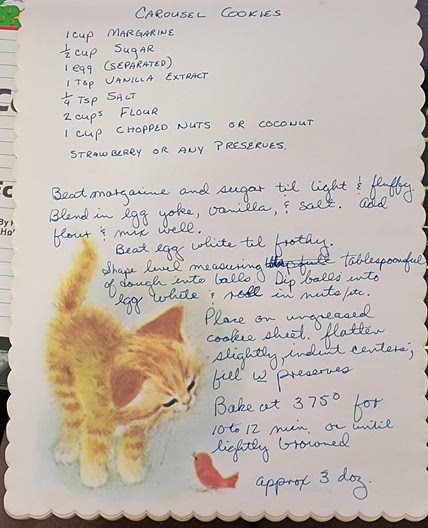 CAROUSEL COOKIES
1 CUP MARGARINE
1/2 CUP SUGAR
1 EGG (SEPARATED)
1 TSP VANILLA EXTRACT
1/4 TSP SALT
2 CUPS FLOUR
1 CUP CHOPPED NUTS OR COCONUT
STRAWBERRY OR ANY PRESERVES.
Beat margarine and sugar til light & fluffy.
Blend in egg yoke, vanilla, & salt. Add
flour & mix well.
Beat egg white til frothy.
Shape level measuring tablespoonful
of dough into balls. Dip balls into
egg white & roll in nuts/etc.
Place on ungreased
cookie sheet. flatten
slightly, indent centers;
fill w preserves
Bake at 375° for
10 to 12 min. or until
lightly browned
approx 3 doz.